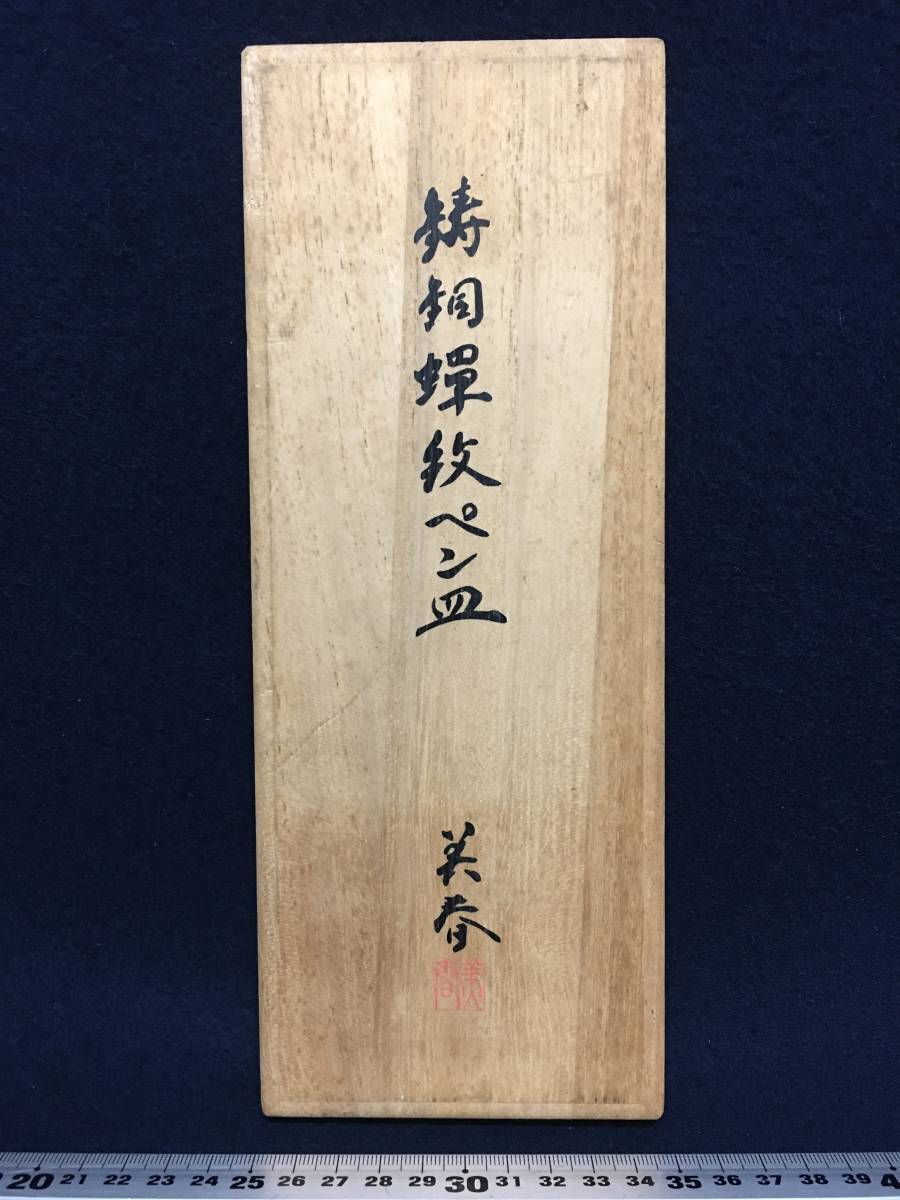 鋳銅蟬紋ペン皿
美春
美春
20 21 22 23 24 25 26 27 28 29 30 31 32 33 34 35 36 37 38 39 4